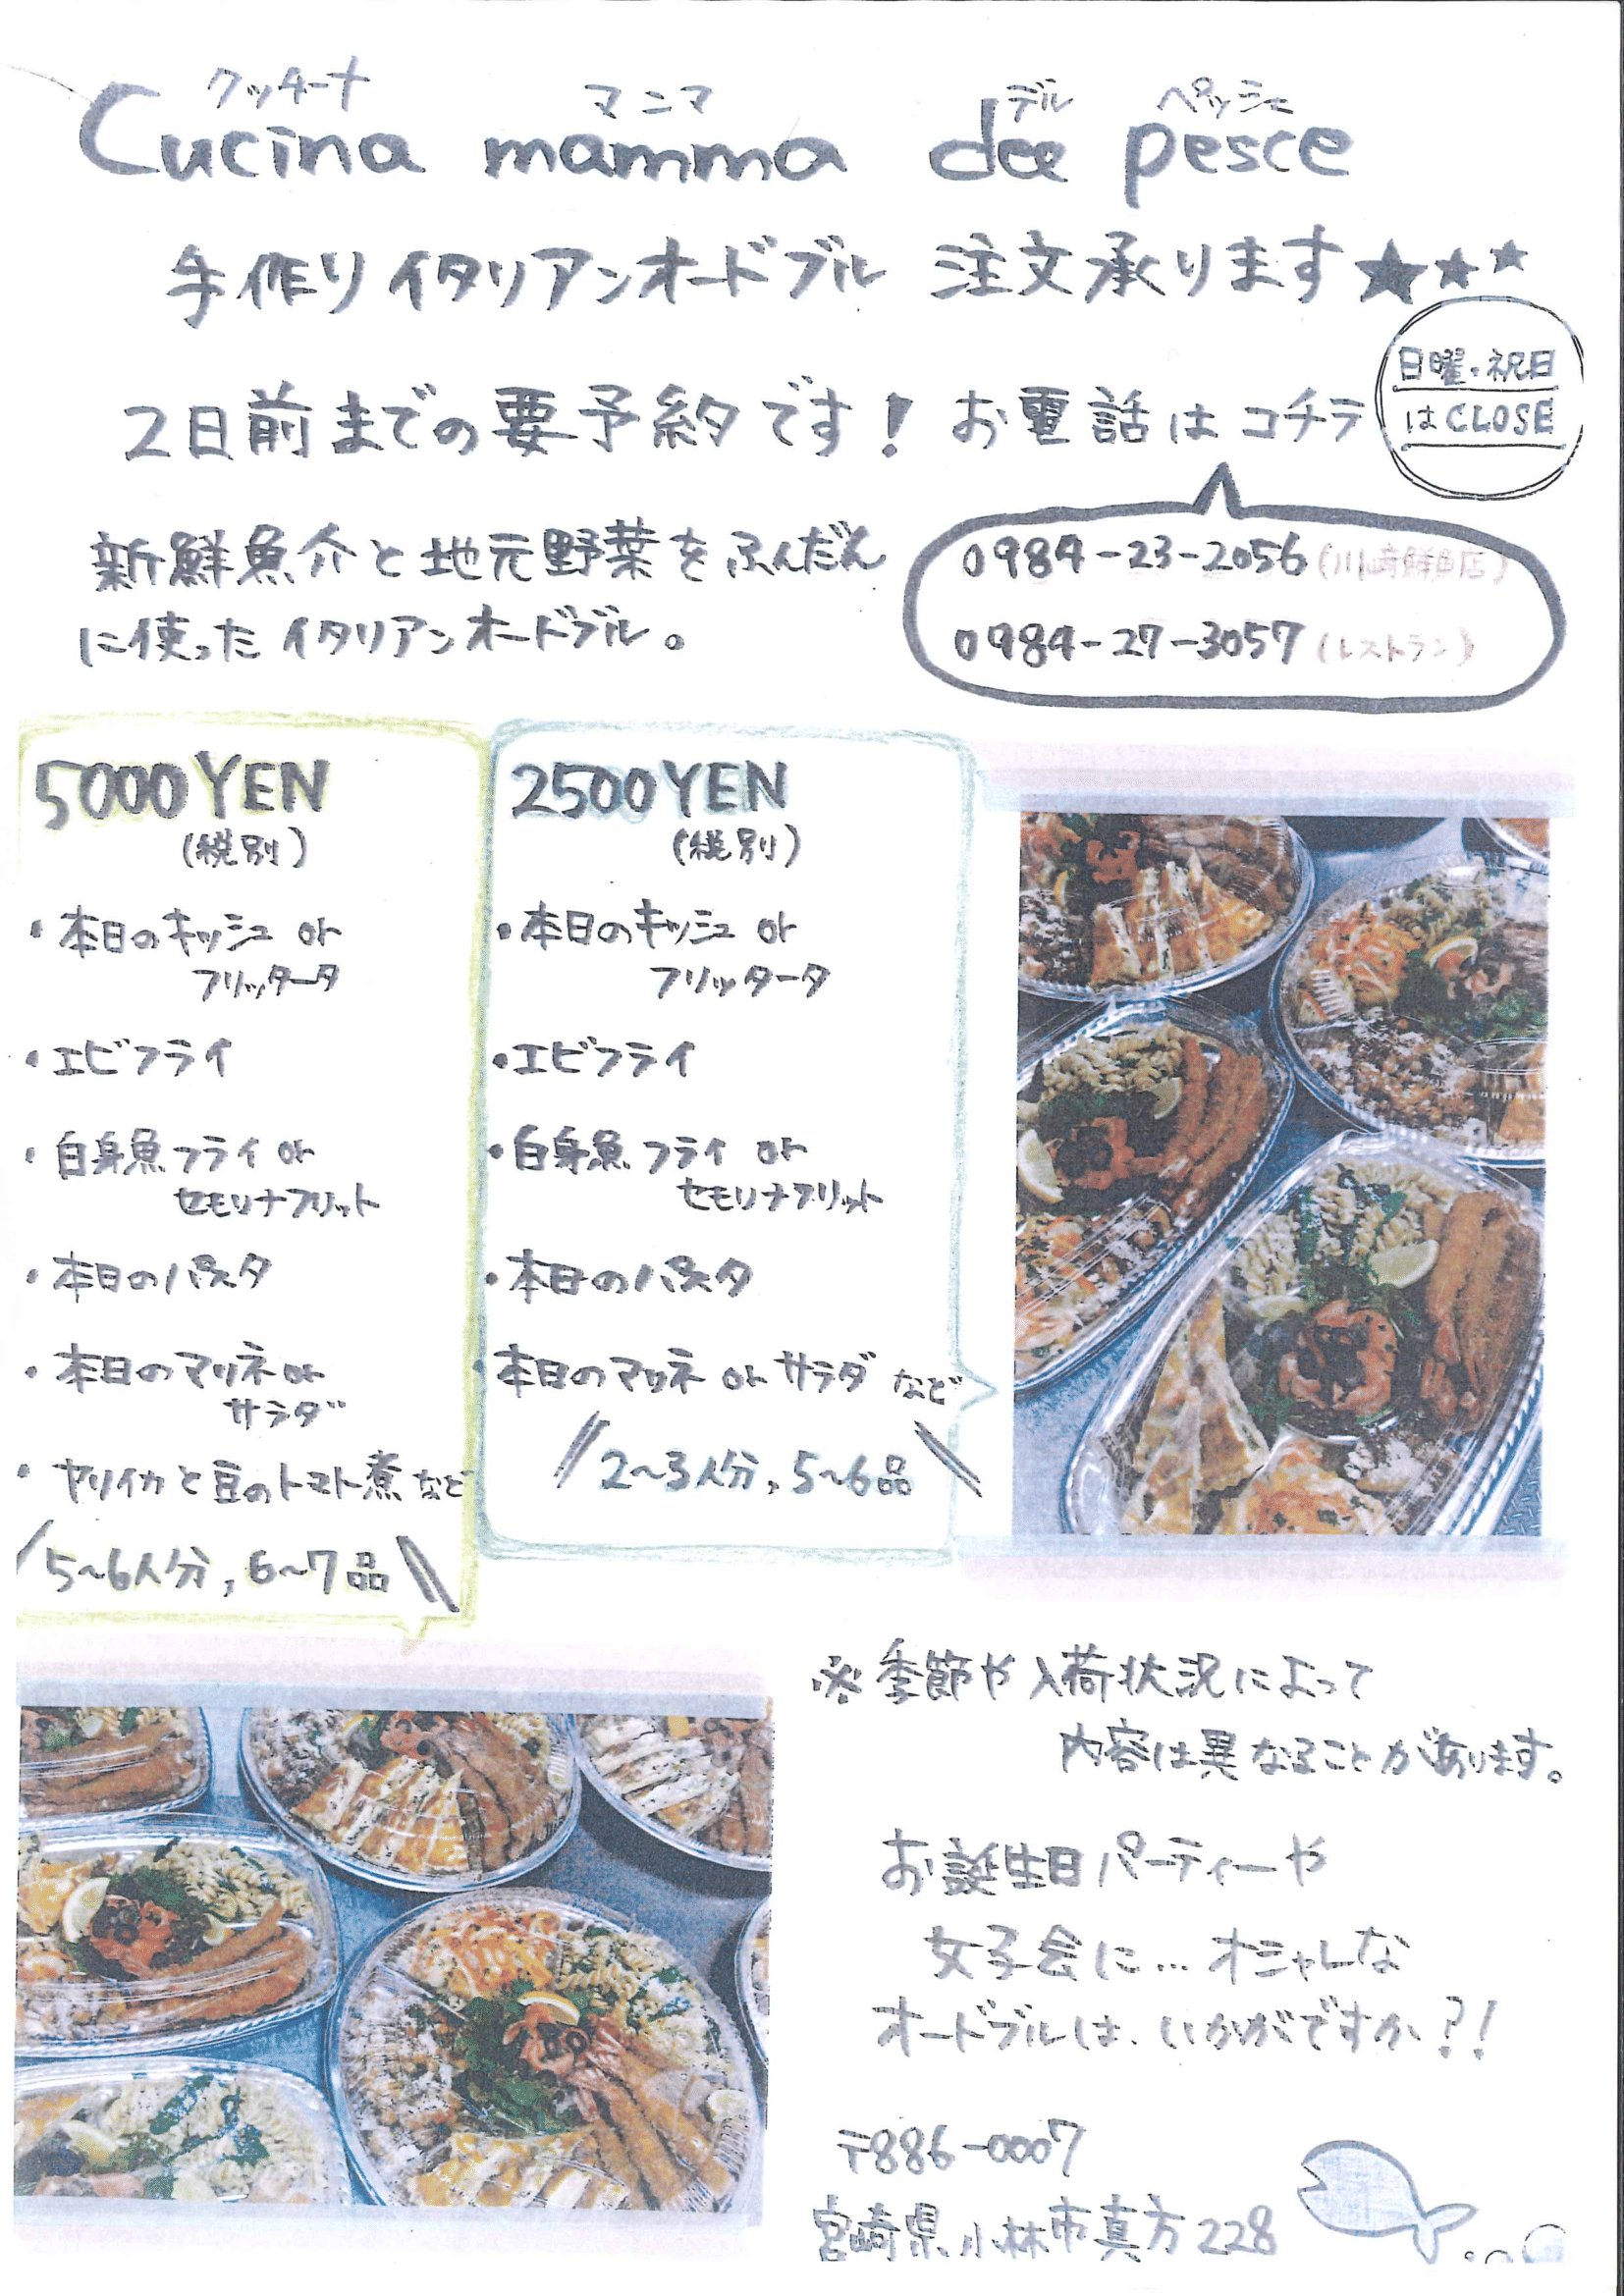 クッチーナ マンマ デル ペッシェ
Cucina mamma del pesce
手作りイタリアンオードブル 注文承ります★★★
日曜・祝日
はCLOSE
2日前までの要予約です! お電話はコチラ
新鮮魚介と地元野菜をふんだん
に使ったイタリアンオードブル。
0984-23-2056(川﨑鮮魚店)
0984-27-3057(レストラン)
5000YEN
(税別)
・本日のキッシュ or
フリッタータ
・エビフライ
・白身魚フライ or
セモリナフリット
・本日のパスタ
・本日のマリネ or
サラダ
・ヤリイカと豆のトマト煮 など
5~6人分, 6~7品
2500YEN
(税別)
・本日のキッシュ or
フリッタータ
・エビフライ
・白身魚フライ or
セモリナフリット
・本日のパスタ
・本日のマリネ or サラダ など
2~3人分, 5~6品
※季節や入荷状況によって
内容は異なることがあります。
お誕生日パーティーや
女子会に…オシャレな
オードブルは、いかがですか?!
〒886-0007
宮崎県小林市真方228